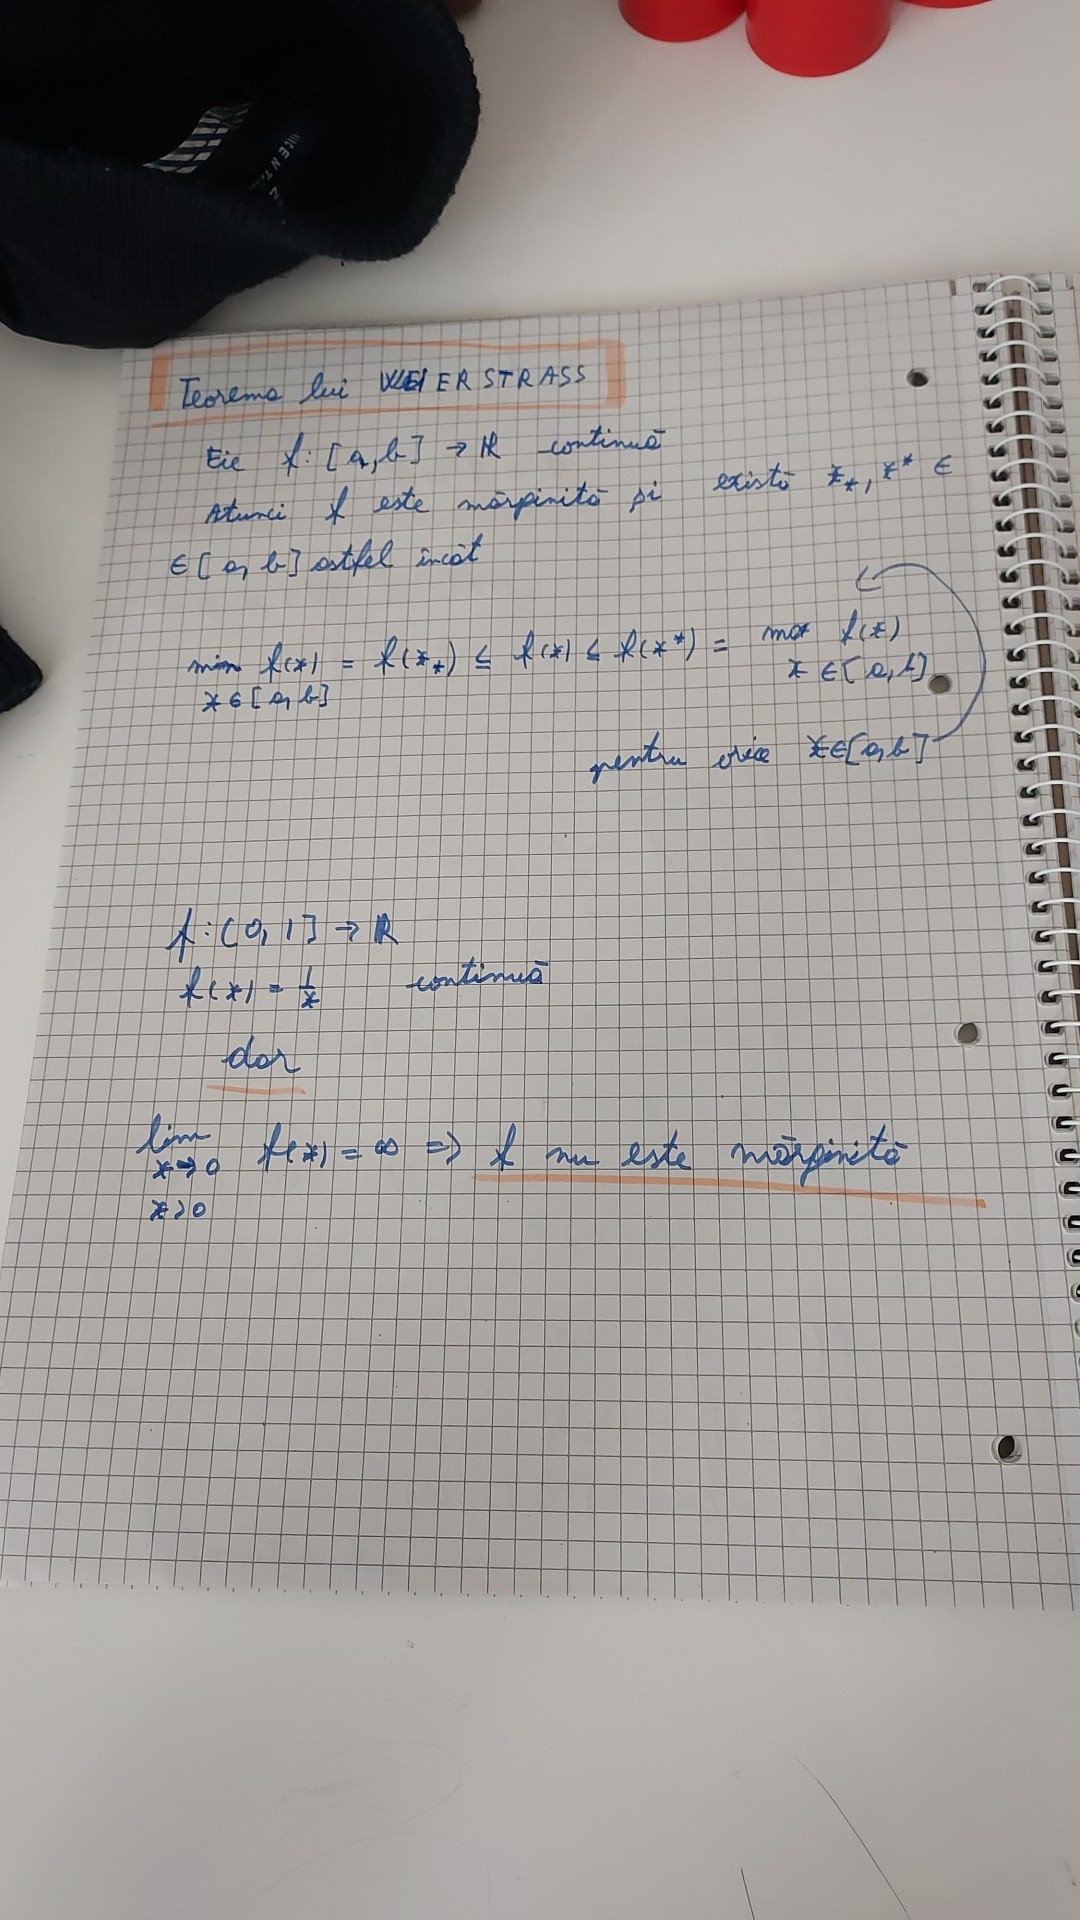 Teorema lui WEIERSTRASS
Fie f: [a,b] → ℝ continuă
Atunci f este mărginită și există x_*, x^* ∈
∈ [a, b] astfel încât
min f(x) = f(x_*) ≤ f(x) ≤ f(x^*) = max f(x)
x ∈ [a, b] x ∈ [a, b]
pentru orice x ∈ [a, b]
f: (0, 1] → ℝ
f(x) = 1/x continuă
dar
lim f(x) = ∞ => f nu este mărginită
x→0
x>0